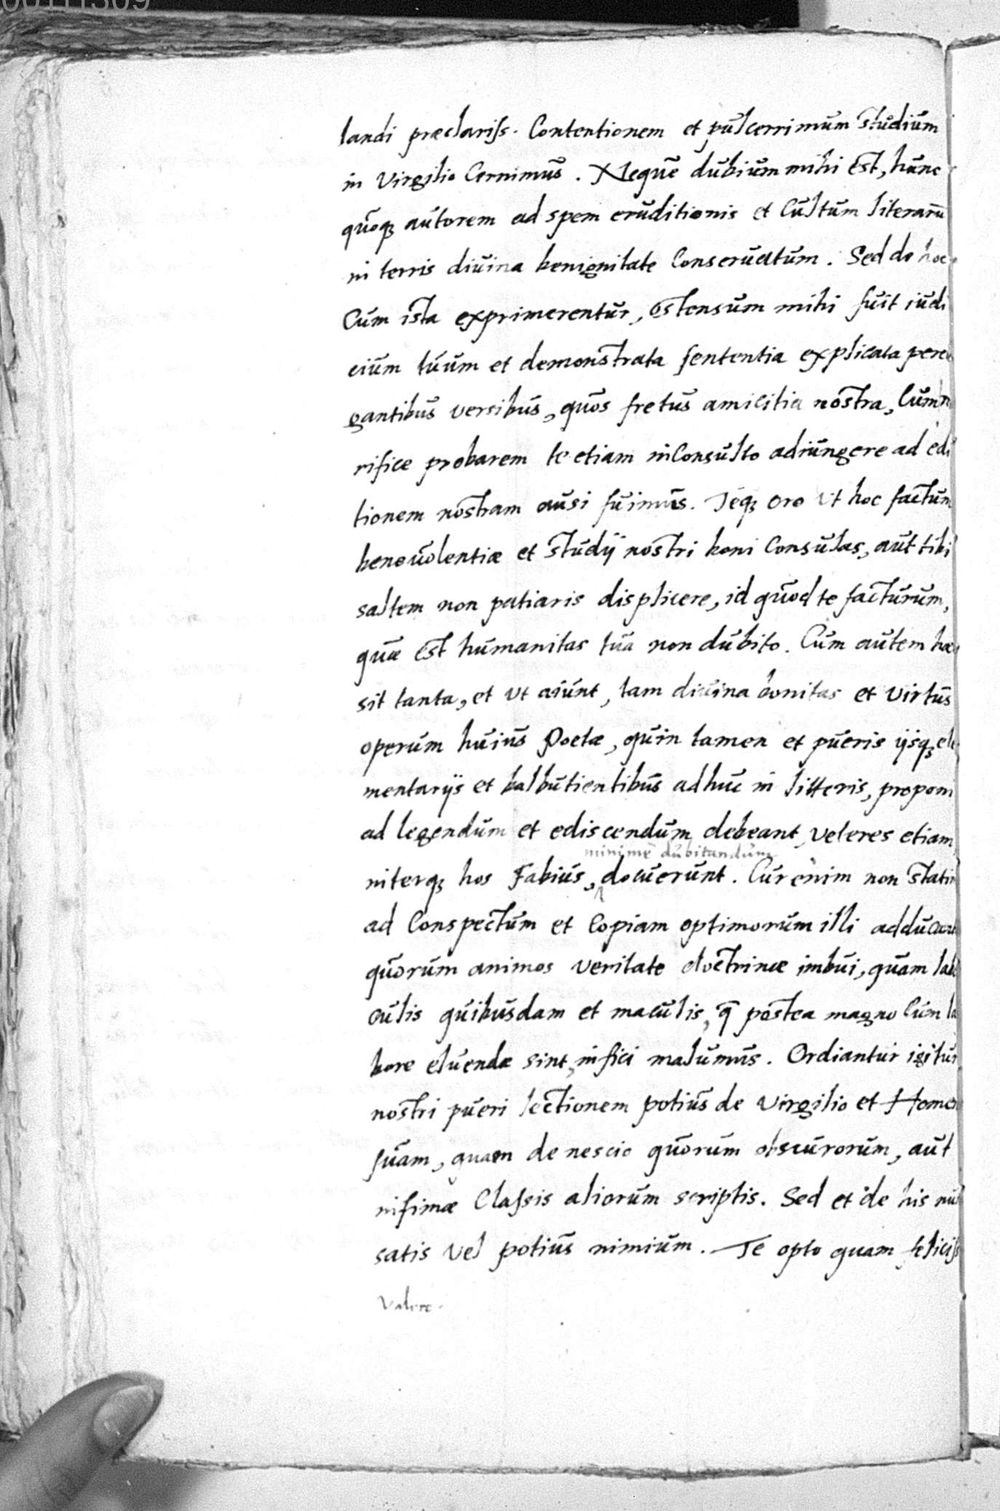 landi præclariss. Contentionem et pulcerrimum studium
in Virgilio Cernimus. Neque dubium mihi est, hunc
quoq; autorem ad spem eruditionis et Cultum literarū
in terris diuina benignitate Conseruatum. Sed de hoc
Cum ista exprimerentur, ostensum mihi fuit iudi
cium tuum et demonstrata sententia explicata pere
gantibus versibus, quos fretus amicitia nostra, Cum
rifice probarem te etiam inConsulto adiungere ad edi
tionem nostram ausi fuimus. Teq; oro Vt hoc factum
beneuolentiæ et studij nostri boni Consulas, aut tibi
saltem non patiaris displicere, id quod te facturum,
quæ est humanitas tua non dubito. Cum autem hæc
sit tanta, et Vt aiunt, tam diuina bonitas et Virtus
operum huius Poetæ, quin tamen et pueris ijsq; ele
mentarijs et balbutientibus adhuc in litteris, proponi
ad legendum et ediscendum debeant, Veteres etiam
minime dubitandum
niterq; hos Fabius, docuerunt. Cur enim non statim
ad Conspectum et Copiam optimorum illi adducant
quorum animos Veritate doctrinæ imbui, quam lab
culis quibusdam et maculis, q̄ postea magno Cum la
bore eluendæ sint, infici malumus. Ordiantur igitur
nostri pueri lectionem potius de Virgilio et Home
suam, quam de nescio quorum obscurorum, aut
infimæ Classis aliorum scriptis. Sed et de his
satis Vel potius nimium. Te opto quam feliciss
Valere.